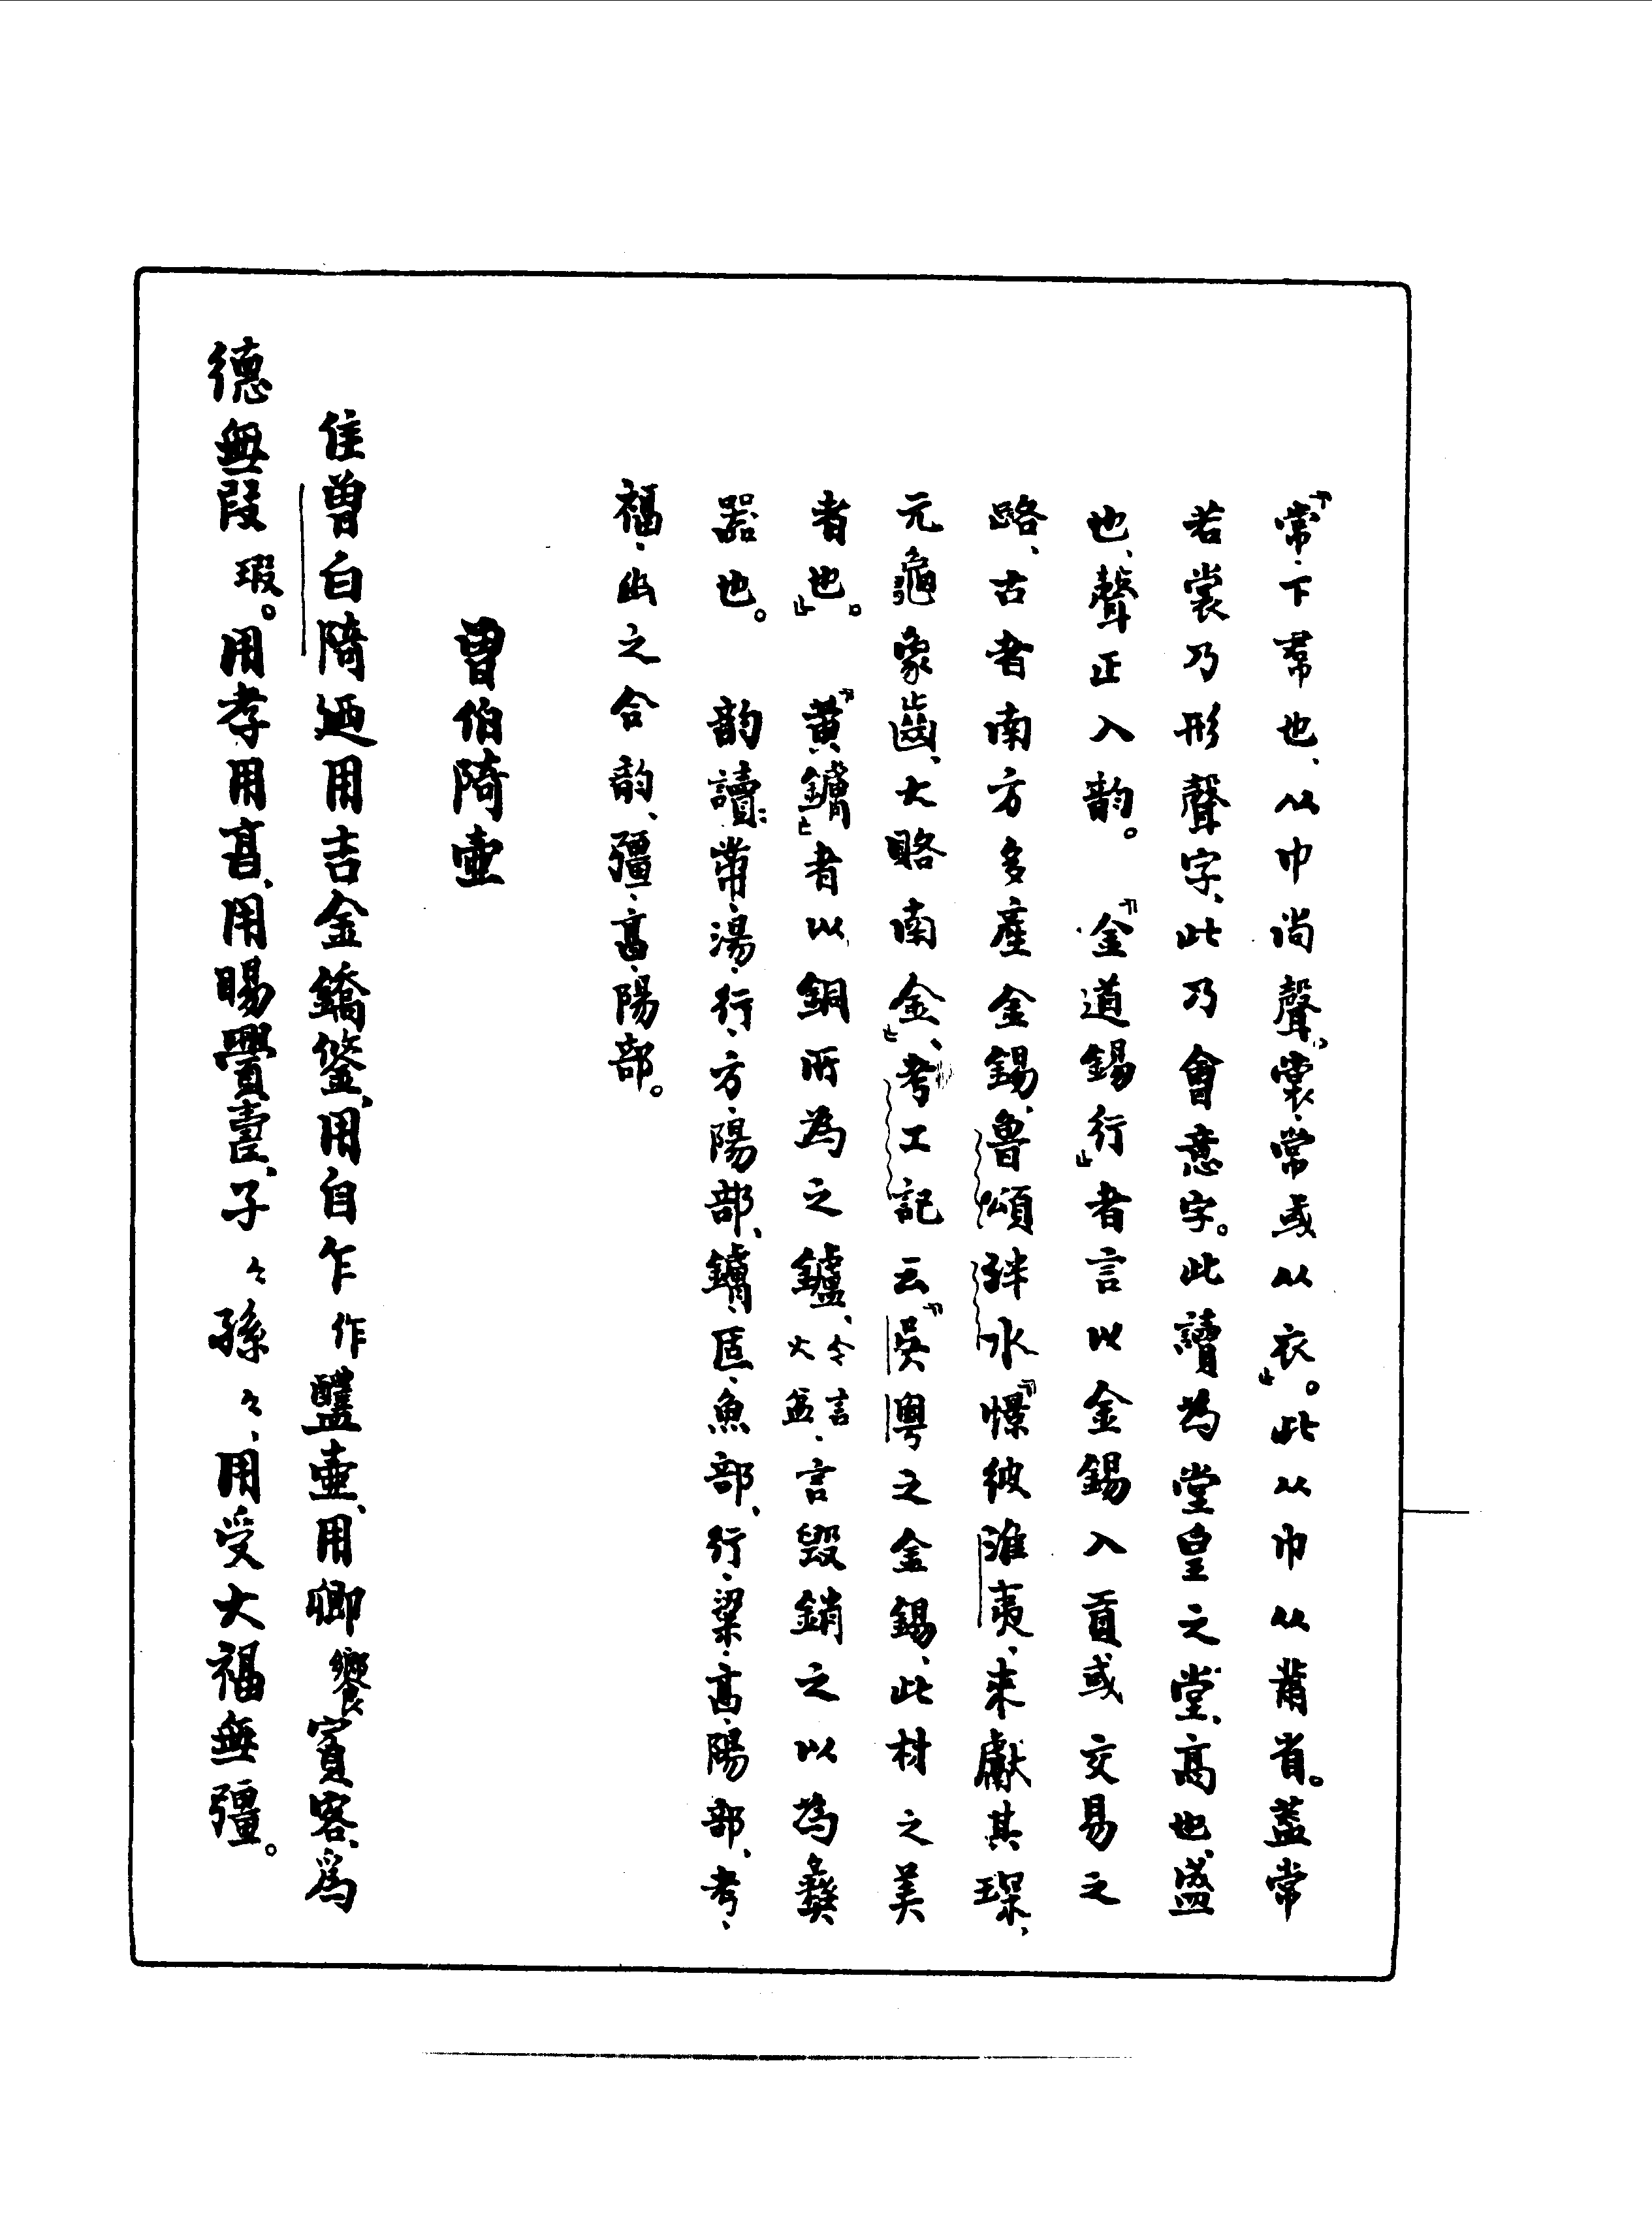 『常、下帬也、从巾尚聲、裳、常或从衣』。此从巾从黹省。蓋常
若裳乃形聲字、此乃會意字。此讀為堂皇之堂、高也、盛
也、聲正入韵。『金道錫行』者言以金錫入貢或交易之
路、古者南方多產金錫、魯頌泮水『憬彼淮夷、來獻其琛、
元龜象齒、大賂南金』、考工記云『吳粵之金錫、此材之美
者也』。『黃鏞』者以銅所為之鑪、今言火盆、言毀銷之以為彝
器也。韵讀：常、湯、行、方、陽部、鏞、匜、魚部、行、粱、亯、陽部、考、
福、幽之合韵、疆、亯、陽部。
曾伯陭壺
隹曾白陭廼用吉金鐈鋚、用自乍作醴壺、用卿饗賓客、為
德無叚瑕。用孝用亯、用賜釁壽、子〻孫〻、用受大福無疆。